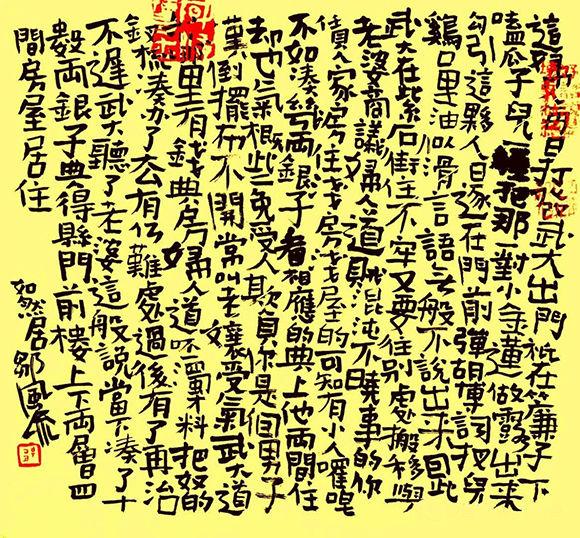 這婦人每日打發武大出門祗在簾子下
嗑瓜子兒一把那一對小金蓮做露出來
勾引這夥人日逐在門前彈胡博詞扠兒
鷄口里油似滑言語無般不說出來因此
武大在紫石街住不牢又要往别處搬移與
老婆商議婦人道賊混沌不曉事的你
賃人家房住淺房淺屋的可知有小人囉唣
不如湊幾兩銀子看相應的典上他兩間住
却也氣概些免受人欺負你是個男子
漢倒擺布不開常叫老孃受氣武大道
我那里有錢典房婦人道呸濁才料把奴的
釵梳湊办了去有何難處過後有了再治
不遲武大聽了老婆這般說當下湊了十
數兩銀子典得縣門前樓上下兩層四
間房屋居住
如然居鄒風